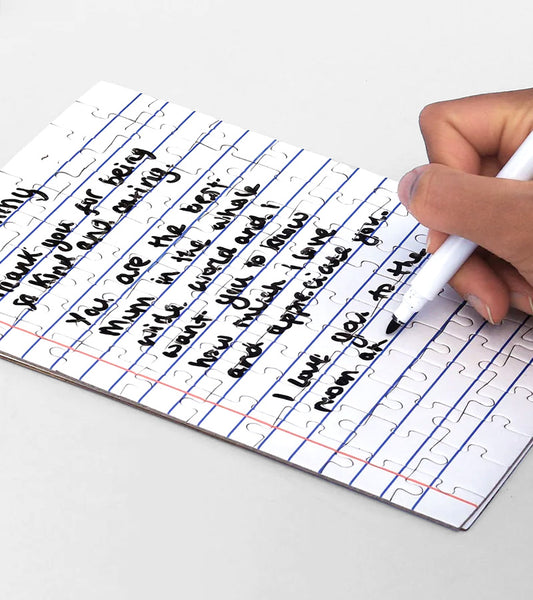 Thank you for being
so kind and caring.
You are the best
Mum in the whole
wide world and I
want you to know
how much I love
and appreciate you.
I Love you to the
moon a